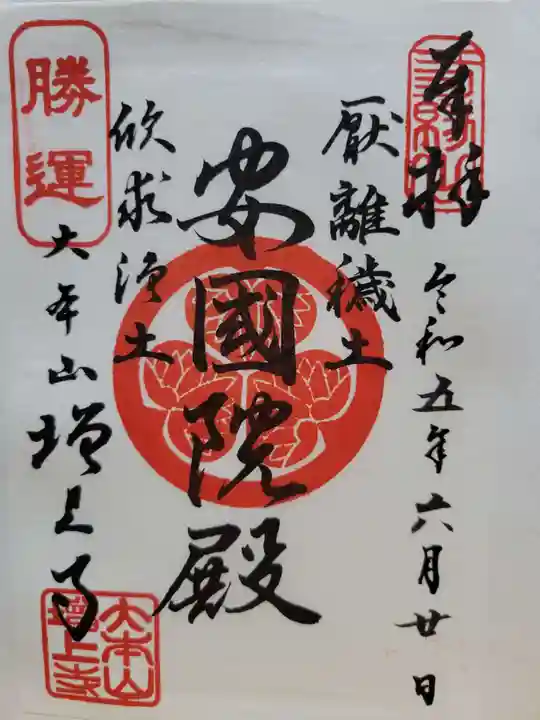 奉拝
令和五年六月廿日
厭離穢土
安國院殿
欣求浄土
勝運
大本山増上寺
大本山
増上寺